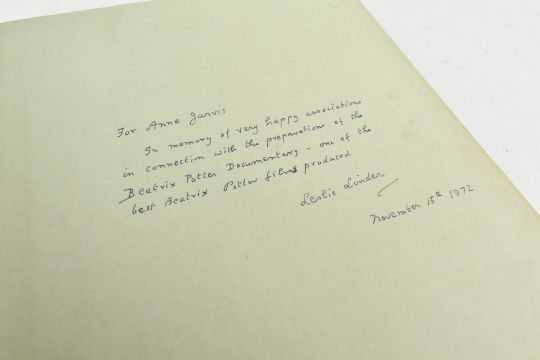 For Anne Jarvis
In memory of very happy associations
in connection with the preparation of the
Beatrix Potter Documentary - one of the
best Beatrix Potter films produced
Leslie Linder
November 15th 1972